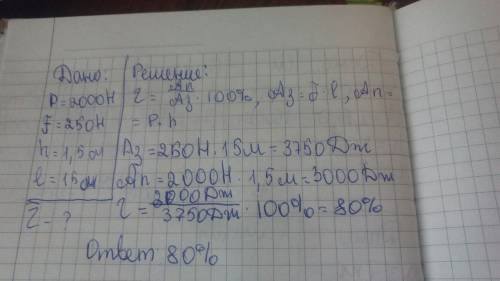 Дано:
P = 2000Н
F = 250Н
h = 1,5м
l = 15м
η - ?
Решение:
η = Aп/Aз · 100%, Aз = F · l, Aп =
= P · h
Aз = 250Н · 15м = 3750Дж
Aп = 2000Н · 1,5м = 3000Дж
η = 2000Дж/3750Дж · 100% = 80%
Ответ 80%